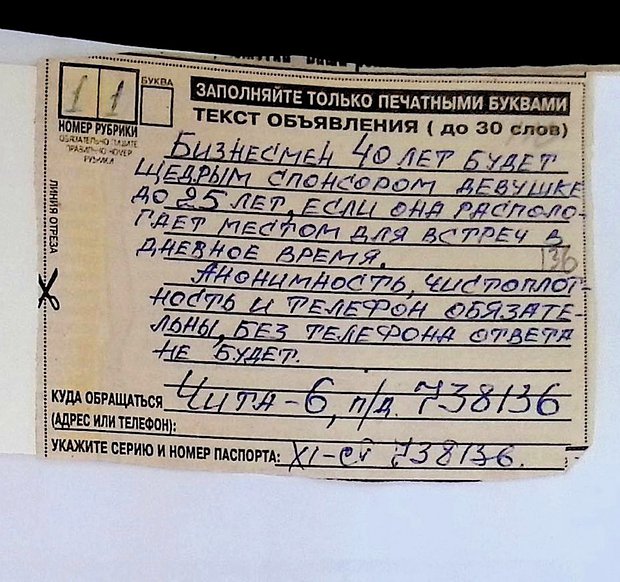 11
БУКВА
НОМЕР РУБРИКИ
ОБЯЗАТЕЛЬНО ПИШИТЕ
ПРАВИЛЬНО НОМЕР
РУБРИКИ
ЗАПОЛНЯЙТЕ ТОЛЬКО ПЕЧАТНЫМИ БУКВАМИ
ТЕКСТ ОБЪЯВЛЕНИЯ ( до 30 слов)
ЛИНИЯ ОТРЕЗА
БИЗНЕСМЕН 40 ЛЕТ БУДЕТ
ЩЕДРЫМ СПОНСОРОМ ДЕВУШКЕ
ДО 25 ЛЕТ, ЕСЛИ ОНА РАСПОЛО-
ГАЕТ МЕСТОМ ДЛЯ ВСТРЕЧ В
ДНЕВНОЕ ВРЕМЯ.
136
АНОНИМНОСТЬ, ЧИСТОПЛОТ-
НОСТЬ И ТЕЛЕФОН ОБЯЗАТЕ-
ЛЬНЫ, БЕЗ ТЕЛЕФОНА ОТВЕТА
НЕ БУДЕТ.
КУДА ОБРАЩАТЬСЯ ЧИТА-6, п/д. 738136
(АДРЕС ИЛИ ТЕЛЕФОН):
УКАЖИТЕ СЕРИЮ И НОМЕР ПАСПОРТА: XI-СП 738136.